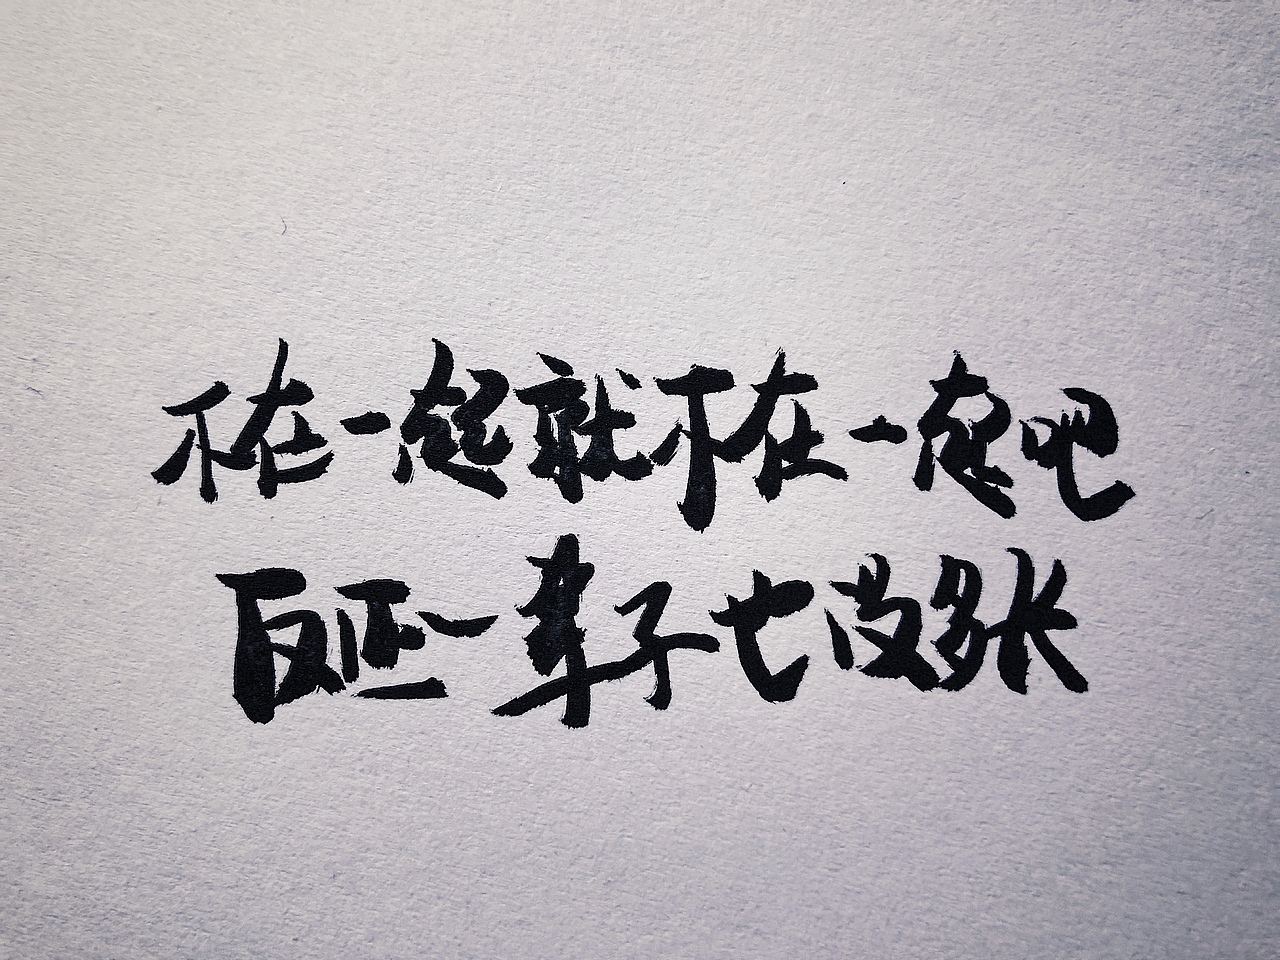 不在一起就不在一起吧
反正一辈子也没多长